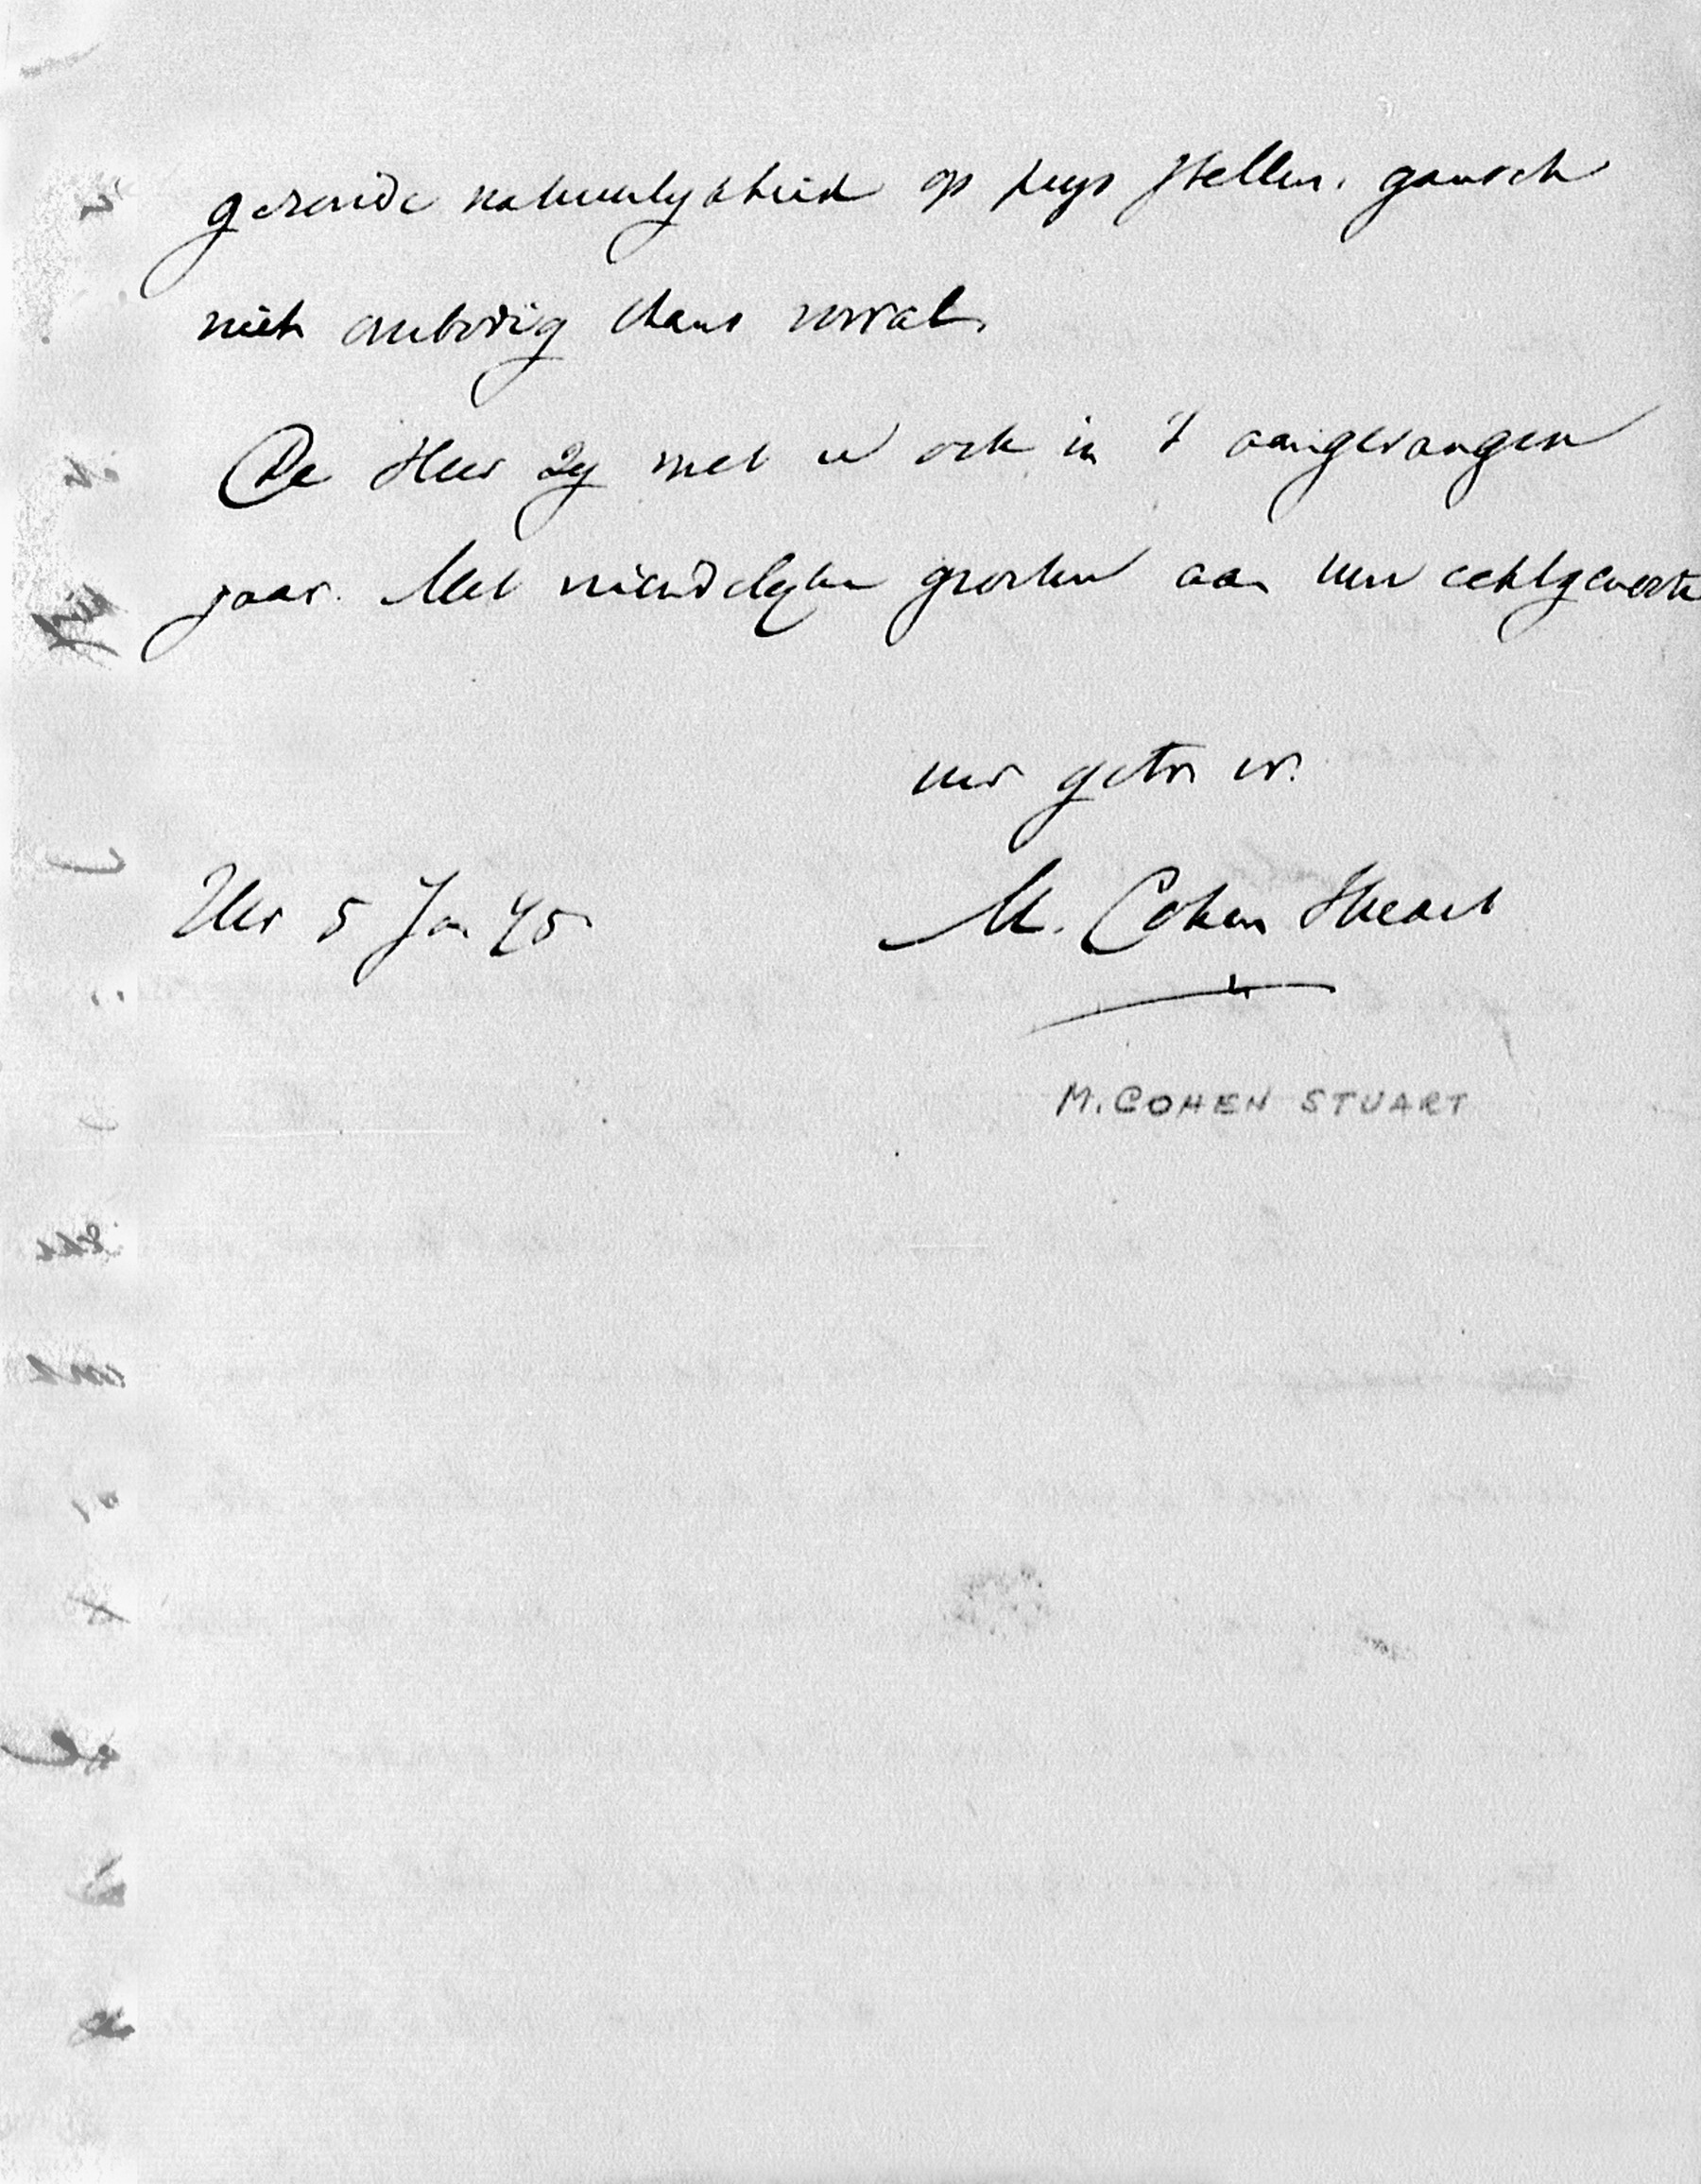 gezonde natuurlykheid op prys stellen, gansch
niet onnodig thans vooral.
De Heer zy met u ook in 't aangevangen
jaar. Met vriendelyke groeten aan uwe echtgenoote
uw getr. vr.
Utr 5 Jan 75
M. Cohen Stuart
M. COHEN STUART